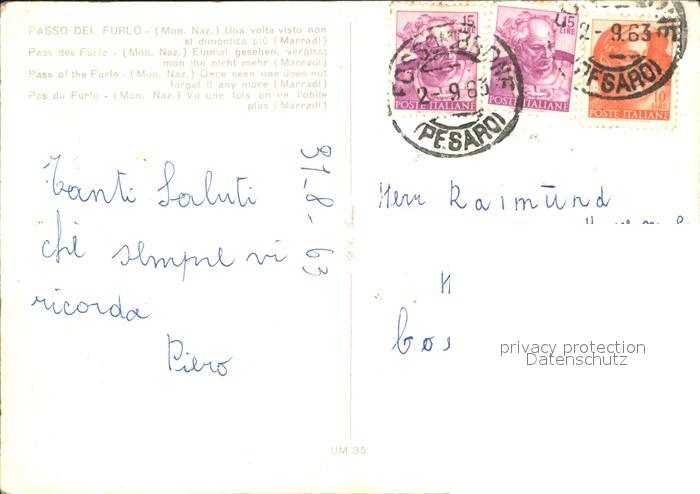 PASSO DEL FURLO - (Mon. Naz.) Una volta visto non
si dimentica più (Marradi)
Pass des Furlo - (Mon. Naz.) Einmal gesehen, vergisst
man ihn nicht mehr (Marradi)
Pass of the Furlo - (Mon. Naz.) Once seen one does not
forget it any more (Marradi)
Pas du Furlo - (Mon. Naz.) Vu une fois on ne l'oblie
plus (Marradi)
Tanti Saluti
chi sempre vi
ricorda
Piero
31-8-63
15
LIRE
POSTE ITALIANE
15
LIRE
POSTE ITALIANE
10
LIRE
POSTE ITALIANE
FOSSOMBRONE
2-9.63
(PESARO)
2-9.63
(PESARO)
Herr Raimund
H
privacy protection
Datenschutz
UM 35